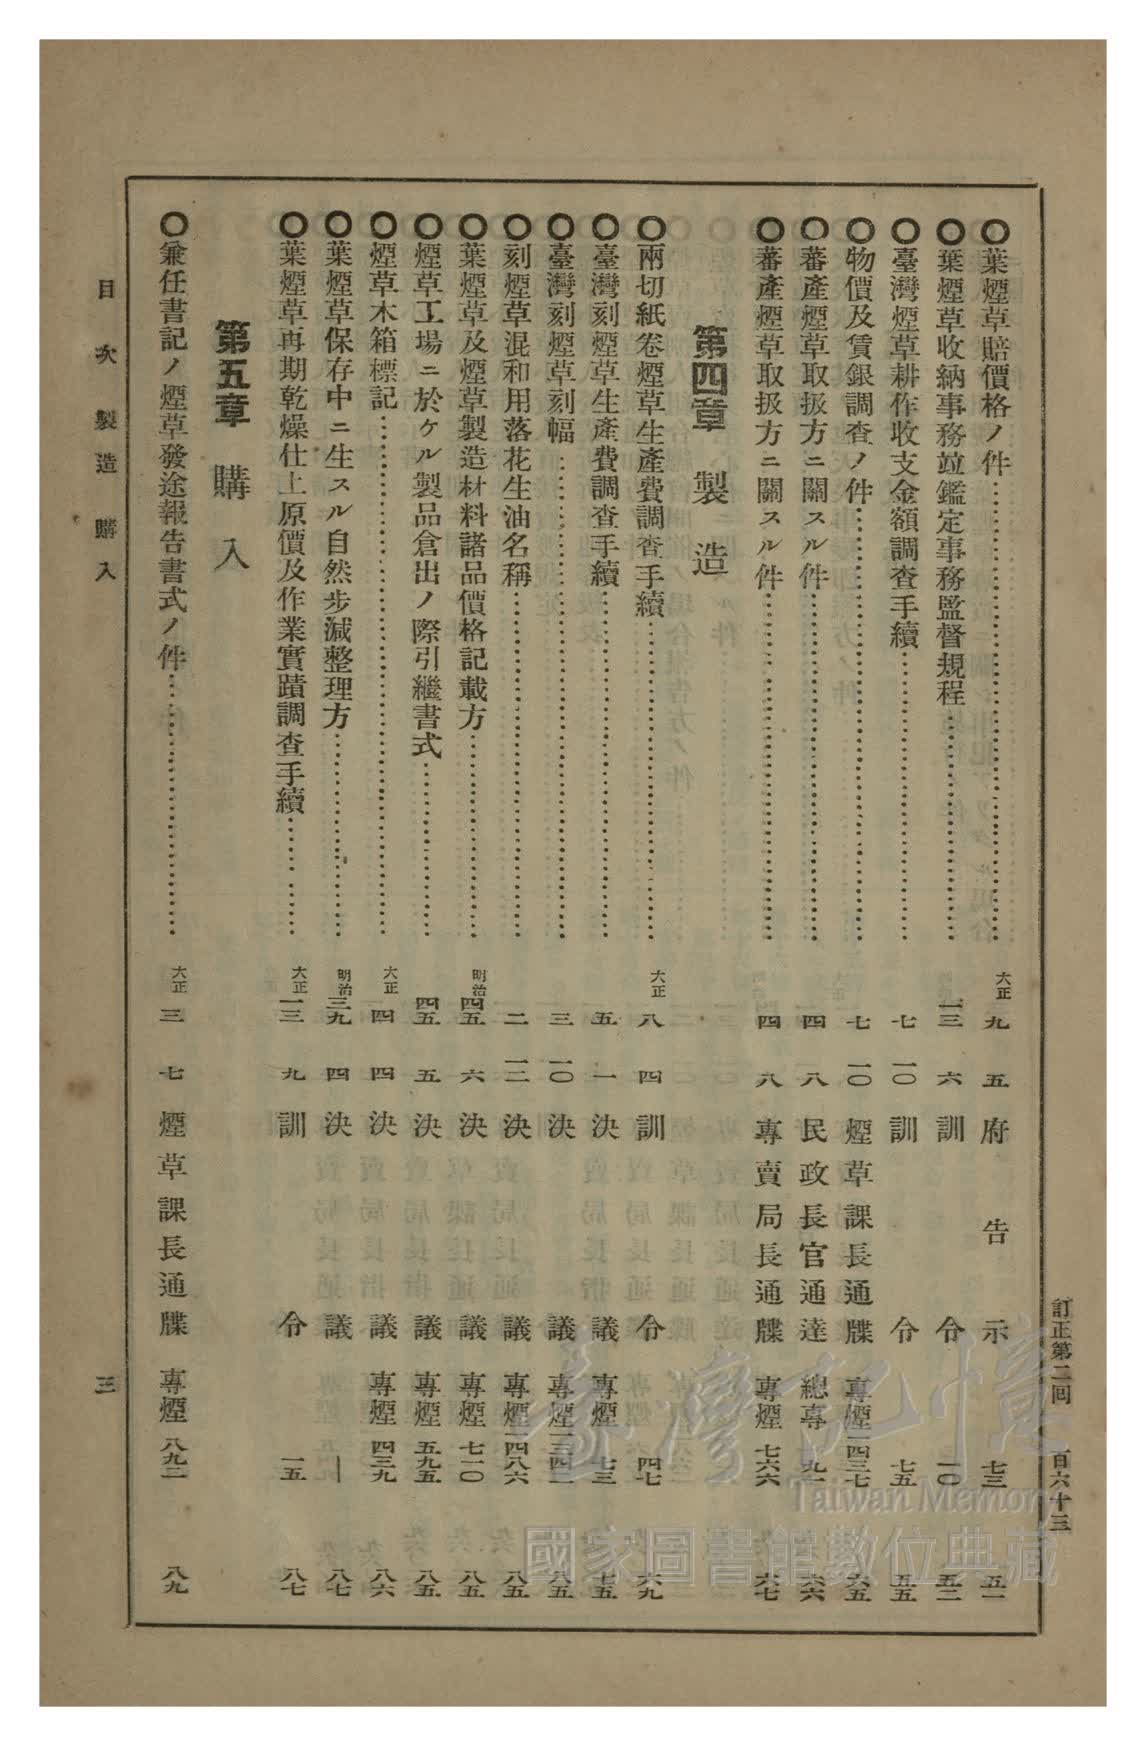 訂正第二回 百六十三
○葉煙草賠償價格ノ件 大正 九 五 府告示 七三 五一
○葉煙草收納事務竝鑑定事務監督規程 一三 六 訓令 一〇 五二
○臺灣煙草耕作收支金額調查手續 七 一〇 訓令 七五 五五
○物價及賃銀調查ノ件 七 一〇 煙草課長通牒 專煙一四三七 六五
○蕃產煙草取扱方ニ關スル件 四 八 民政長官通達 總專 六六
○蕃產煙草取扱方ニ關スル件 四 八 專賣局長通牒 專煙七六六 六七
第四章 製造
○兩切紙卷煙草生產費調查手續 大正 八 四 訓令 四七 六九
○臺灣刻煙草生產費調查手續 五 一 決議 專煙七三 七五
○臺灣刻煙草刻幅 三 一〇 決議 專煙 八五
○刻煙草混和用落花生油名稱 二 一二 決議 專煙一四八六 八五
○葉煙草及煙草製造材料諸品價格記載方 明治 四五 六 決議 專煙七一〇 八五
○煙草工場ニ於ケル製品倉出ノ際引繼書式 四五 五 決議 專煙五九五 八五
○煙草木箱標記 大正 四 四 決議 專煙四三九 八六
○葉煙草保存中ニ生スル自然步減整理方 明治 三九 四 決議 ― 八七
○葉煙草再期乾燥仕上原價及作業實蹟調查手續 大正 一三 九 訓令 一五 八七
第五章 購入
○兼任書記ノ煙草發途報告書式ノ件 大正 三 七 煙草課長通牒 專煙八九二 八九
目次 製造 購入 三
臺灣記憶
Taiwan Memory
國家圖書館數位典藏